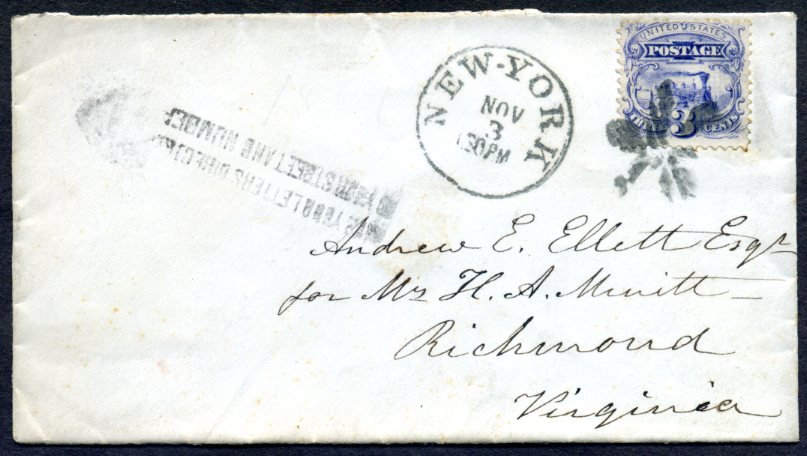 UNITED STATES
POSTAGE
THREE 3 CENTS
NEW-YORK
NOV
3
1 30 PM
HAVE YOUR LETTERS DIRECTED
TO YOUR STREET AND NUMBER
Andrew E. Ellett Esqr
for Mr H. A. Merritt
Richmond
Virginia